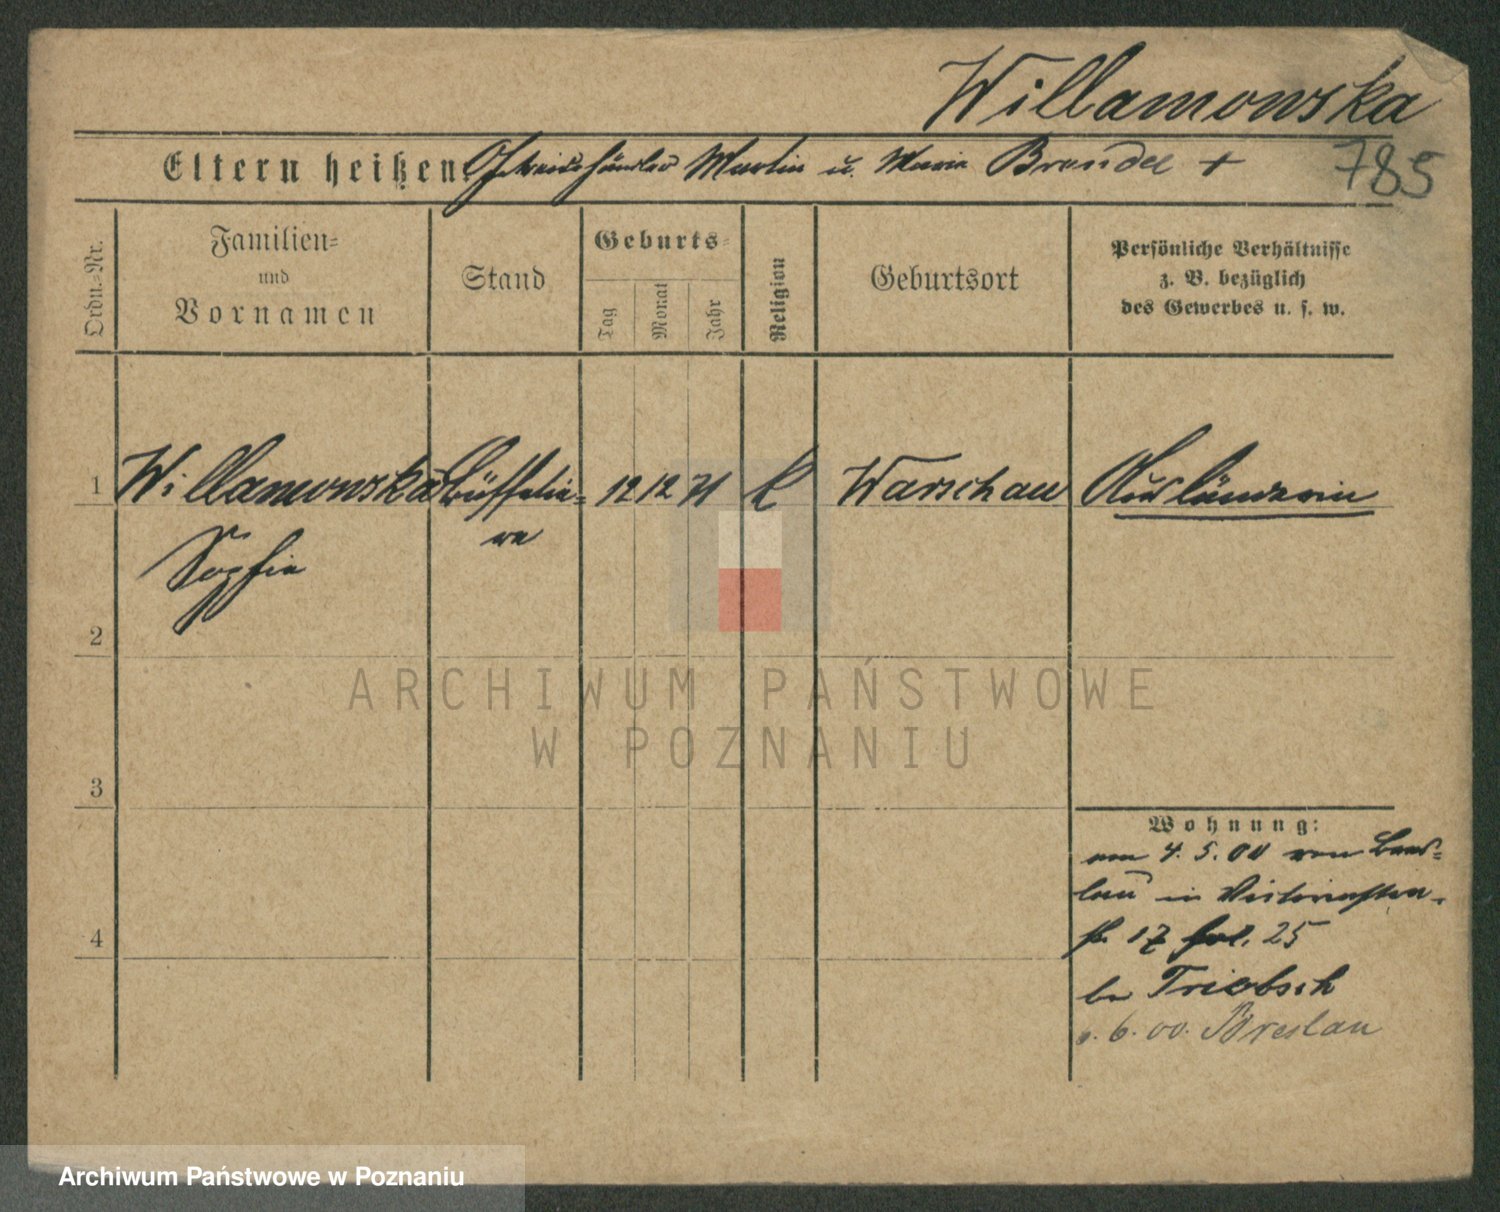 Willamowska
Eltern heißen Getreidehändler Martin u. Marie Brendel +
785
Ordn.=Nr.
Familien=
und
Vornamen
Stand
Geburts=
Tag
Monat
Jahr
Religion
Geburtsort
Persönliche Verhältnisse
z. B. bezüglich
des Gewerbes u. s. w.
1 Willamowska Büffetie= 12 12 71 k Warschau Ausländerin
Sophie re
2
3
4
Wohnung:
am 4. 5. 00 von Bres=
lau in Victoria
17 25
bei Triebsch
6. 00. Breslau
ARCHIWUM PAŃSTWOWE
W POZNANIU
Archiwum Państwowe w Poznaniu